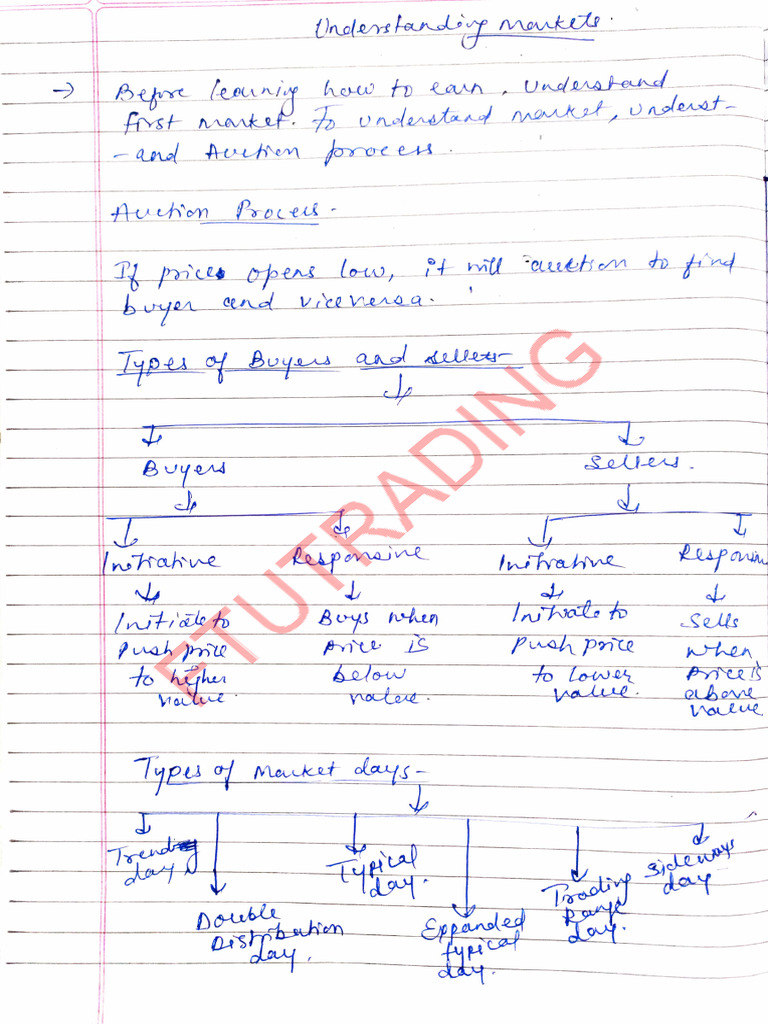 Understanding Markets.
→ Before learning how to earn, understand
first market. To understand market, underst-
-and Auction process.
Auction Process -
If price opens low, it will auction to find
buyer and viceversa.
Types of Buyers and Sellers-
Buyers Sellers.
Initiative Responsive Initiative Responsive
Initiate to Buys when Initiate to Sells
push price price is push price when
to higher below to lower price is
value. value. value. above
value
Types of Market days-
Trending Typical Trading Sideways
day day. Range day
Double Expanded day.
Distribution typical
day. day.
FTUTRADING